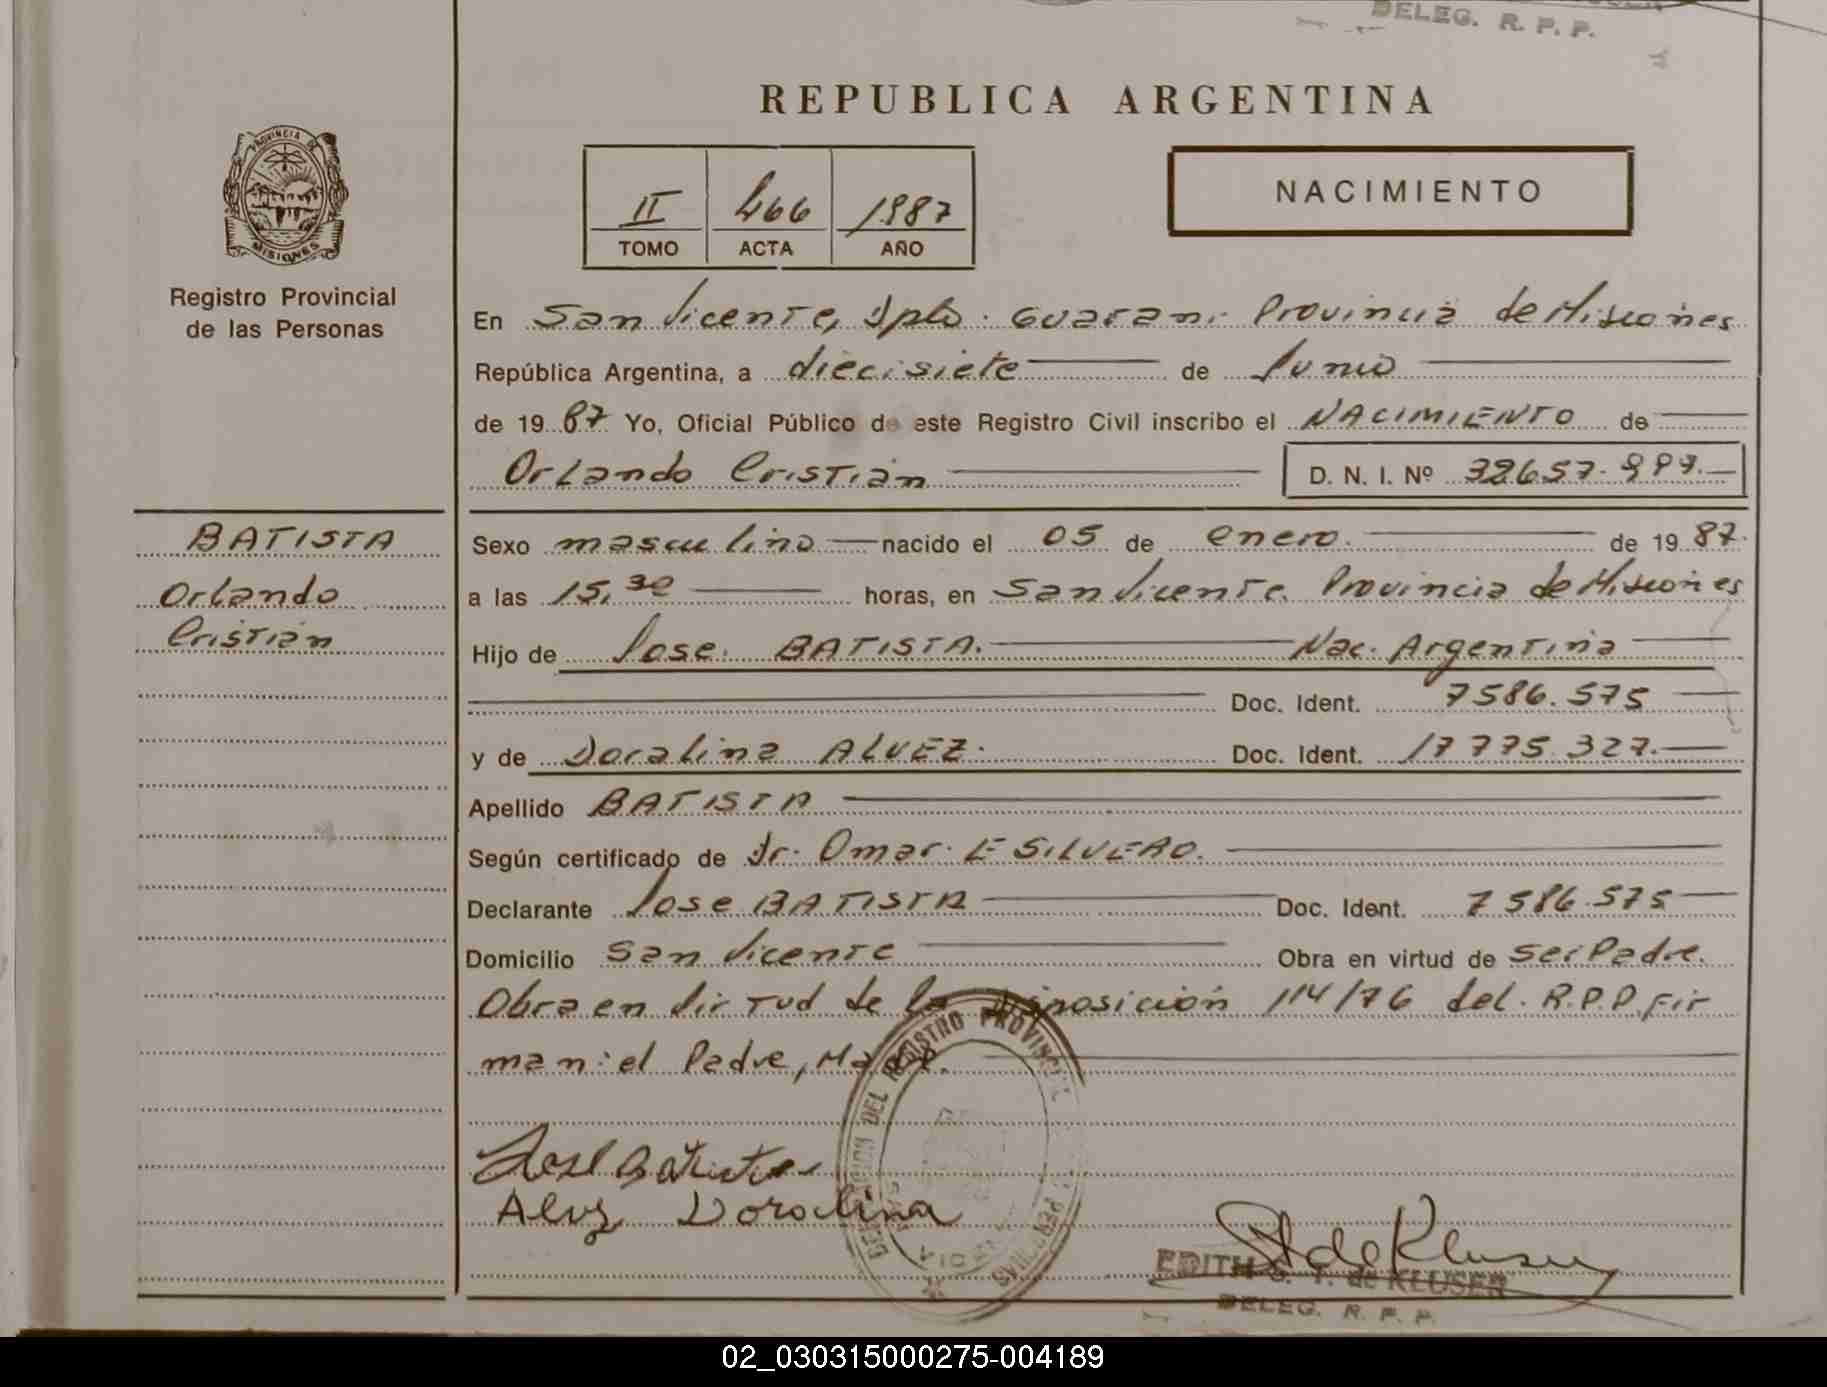 DELEG. R. P. P.
REPUBLICA ARGENTINA
PROVINCIA DE
MISIONES
Registro Provincial
de las Personas
II 466 1987
TOMO ACTA AÑO
NACIMIENTO
En San Vicente, Dpto. Guarani Provincia de Misiones
República Argentina, a diecisiete de Junio
de 1987 Yo, Oficial Público de este Registro Civil inscribo el NACIMIENTO de
Orlando Cristian D. N. I. Nº 32657.997.
BATISTA
Orlando
Cristian
Sexo masculino nacido el 05 de enero. de 1987.
a las 15,30 horas, en San Vicente. Provincia de Misiones
Hijo de Jose. BATISTA. Nac. Argentina
Doc. Ident. 7586.575
y de Doralina ALVEZ. Doc. Ident. 17775.327.
Apellido BATISTA
Según certificado de Dr. Omar. E SILVERO.
Declarante Jose BATISTA Doc. Ident. 7586.575
Domicilio San Vicente Obra en virtud de ser Padre.
Obra en virtud de la Disposición 114/76 del. R.P.P. Fir
man: el Padre, Madre.
Jose Batista
Alvz Doralina
DELEGACION DEL REGISTRO PROVINCIAL PERSONAS
VICENTE
EDITH G. T. de KLUSER
DELEG. R. P. P.
02_030315000275-004189